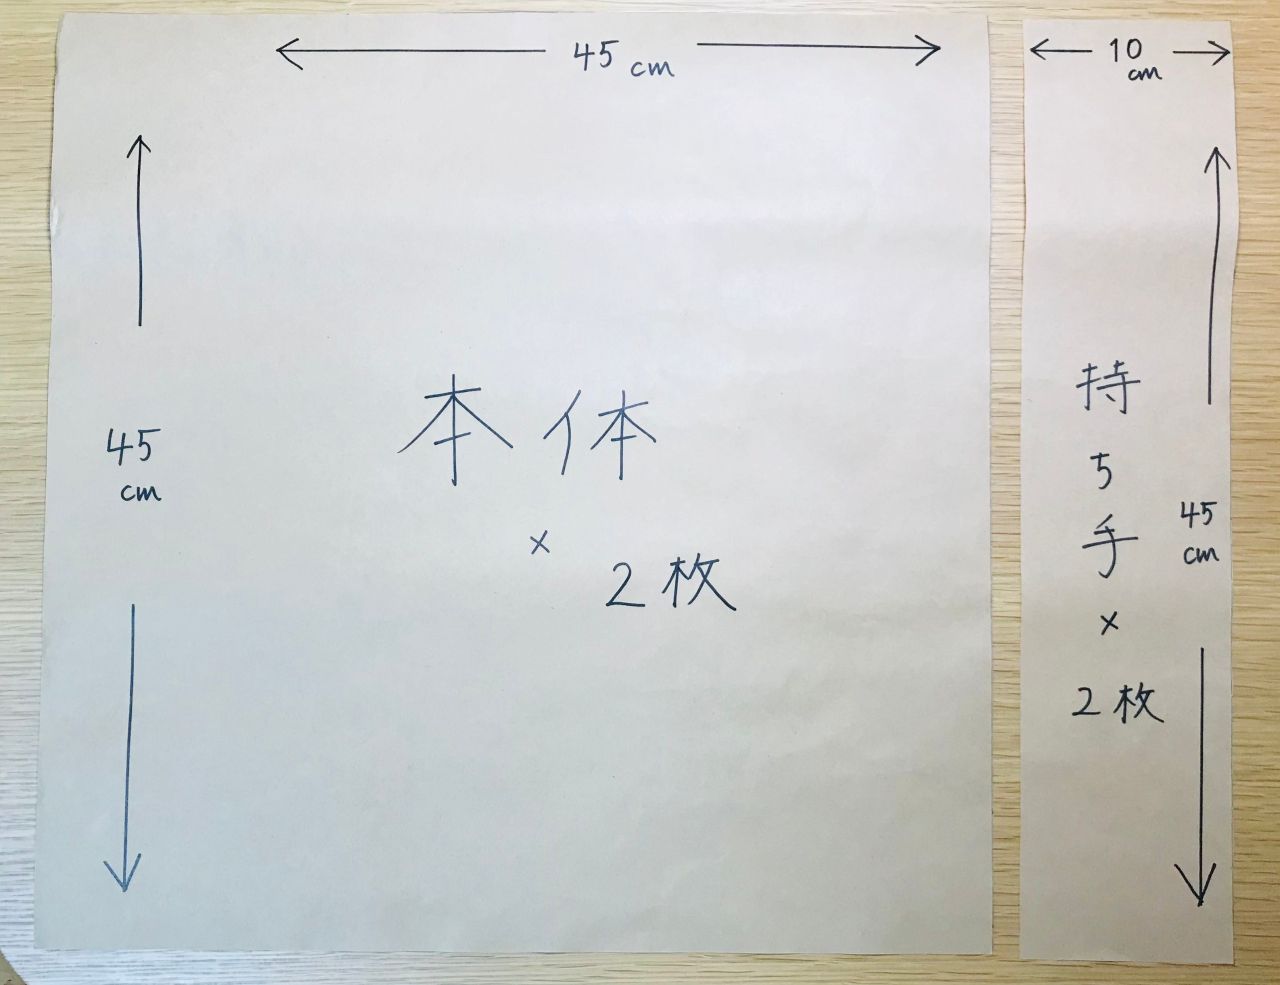 45 cm
45
cm
本体
×
2枚
10
cm
持
ち
手
×
2枚
45
cm